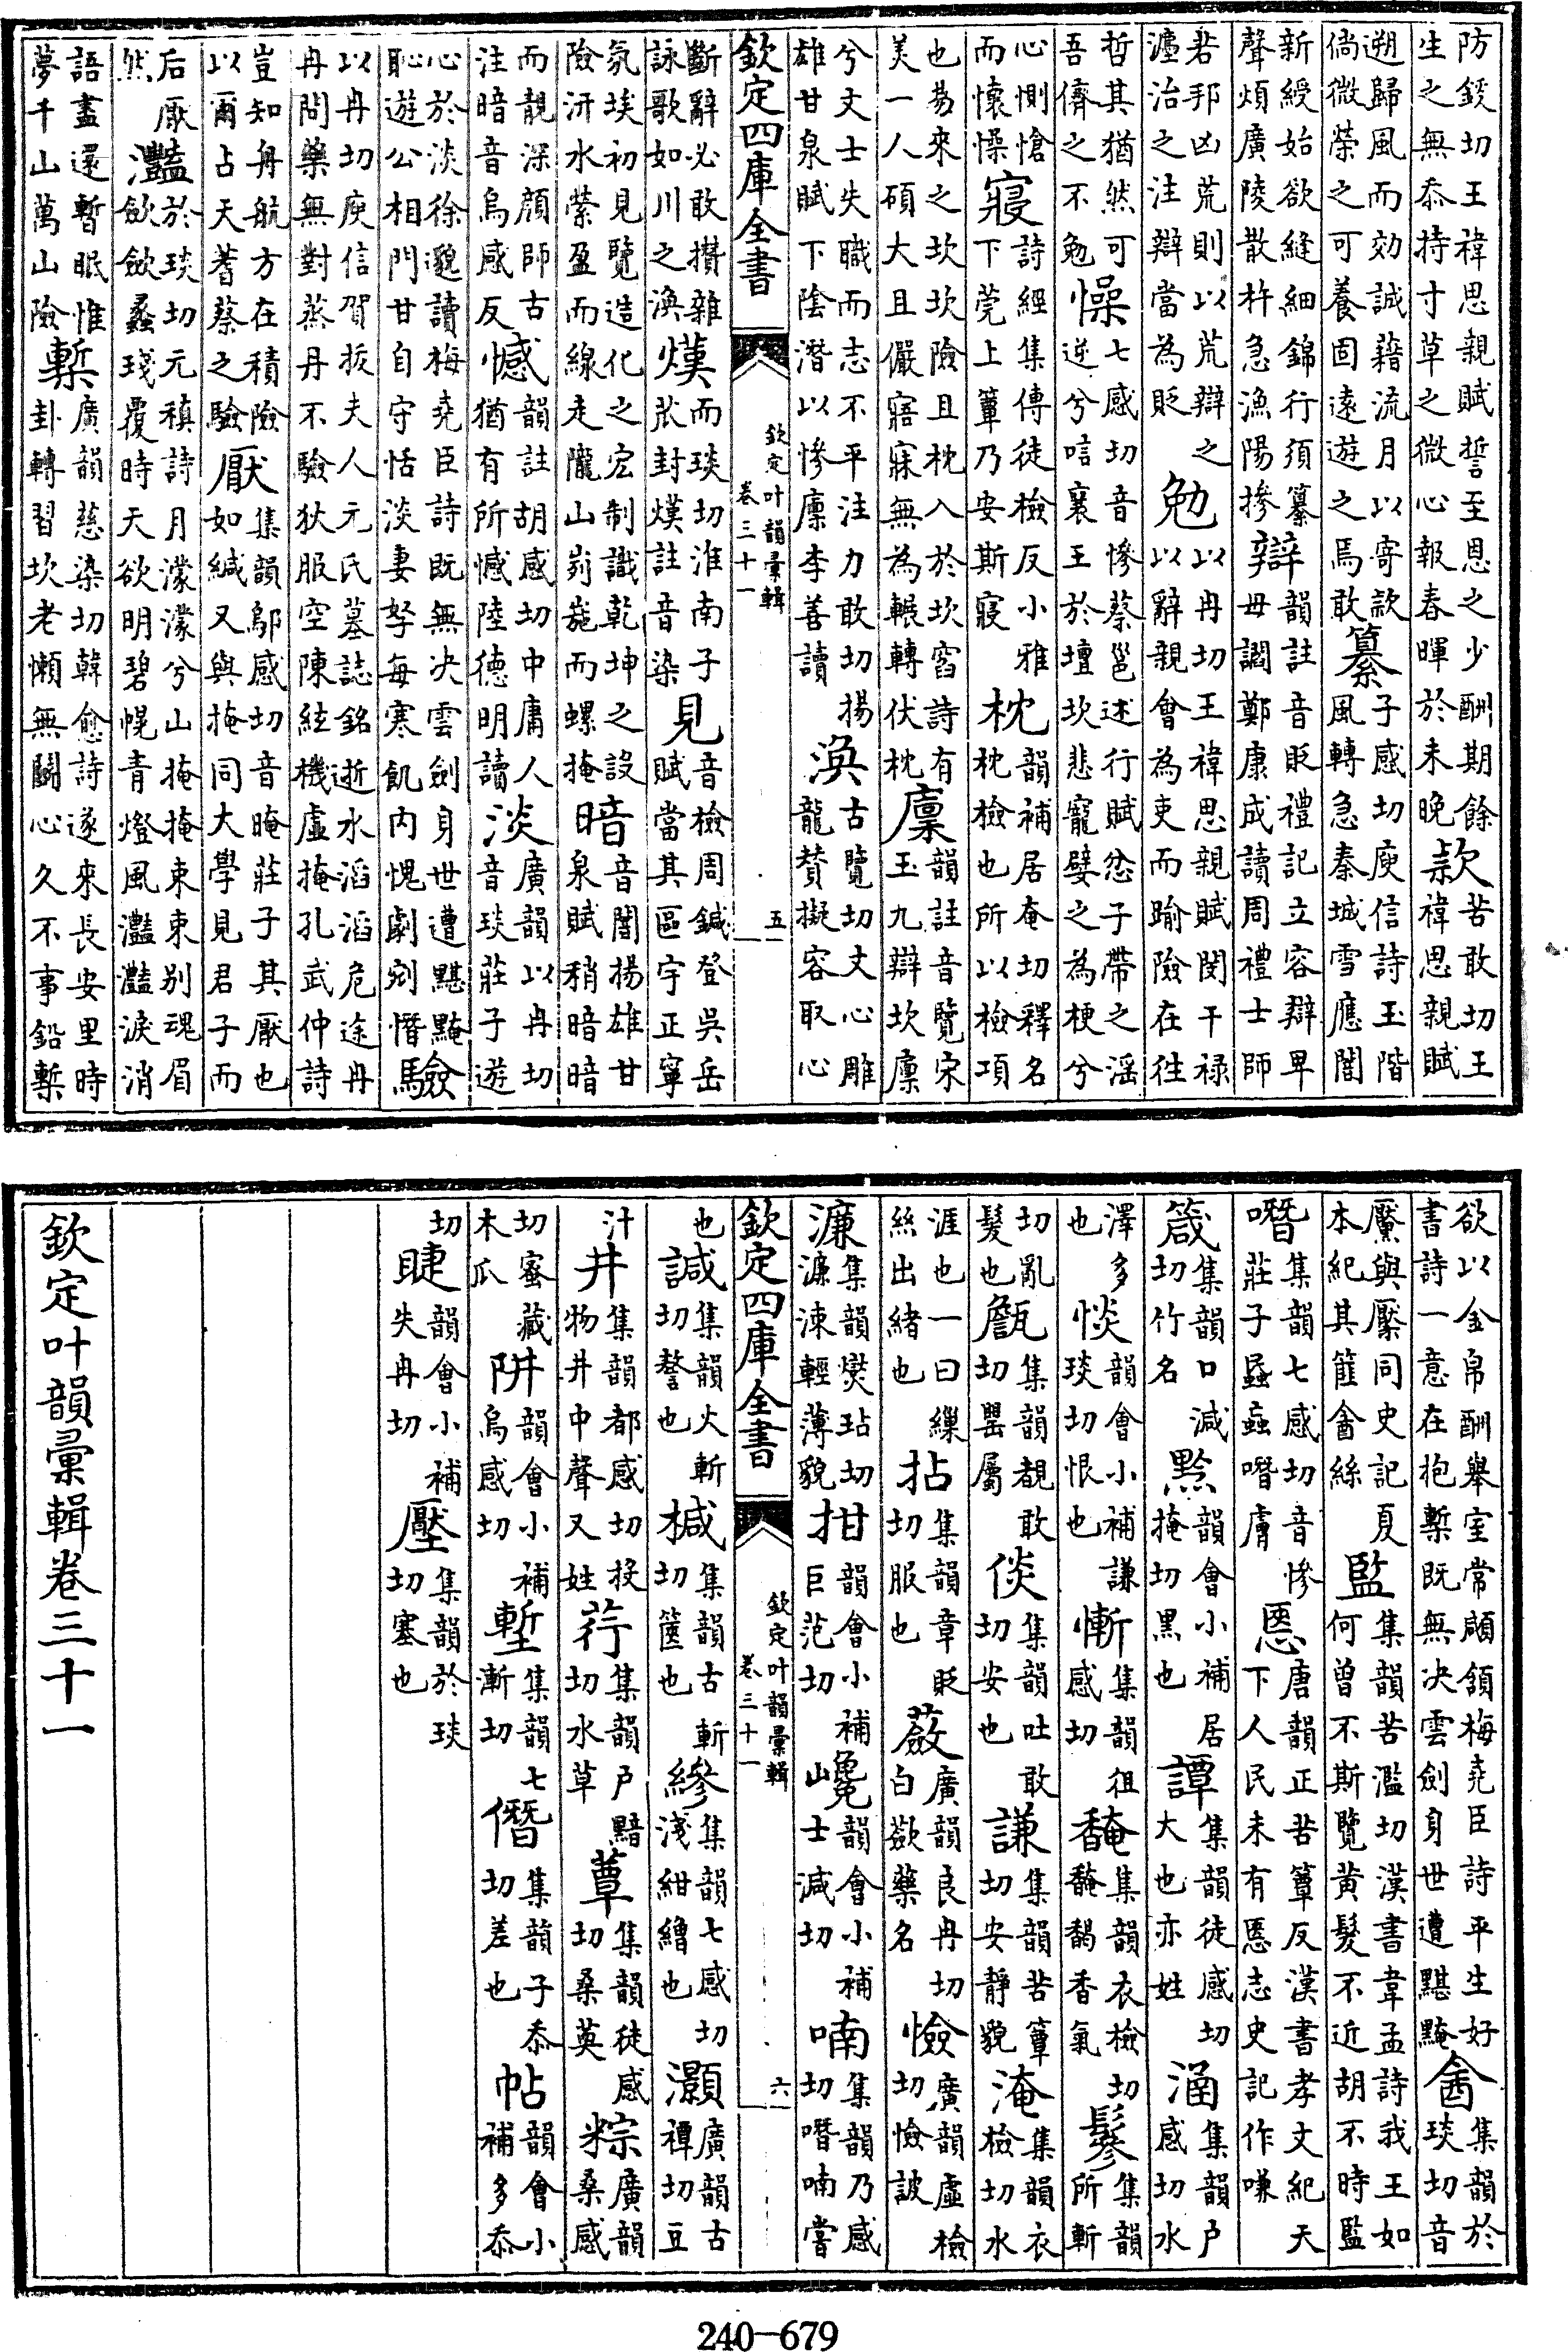 防錽切王禕思親賦誓至恩之少酬期餘
生之無忝持寸草之微心報春暉於未晚
款
苦敢切王
禕思親賦
遡歸風而効誠藉流月以寄款
倘微榮之可養固遠遊之焉敢
纂
子感切庾信詩玉階
風轉急秦城雪應闇
新綬始欲縫細錦行須纂
聲煩廣陵散杵急漁陽摻
辯
韻註音貶禮記立容辯卑
毋讇鄭康成讀周禮士師
若邦凶荒則以荒辯之
瀘治之注辯當為貶
勉
以冉切王禕思親賦閔干禄
以辭親會為吏而踰險在往
哲其猶然可
吾儕之不勉
懆
七感切音慘蔡邕述行賦忿子帶之滛
逆兮唁襄王於壇坎悲寵嬖之為梗兮
心惻愴
而懷懆
寢
詩經集傳徒檢反小雅
下莞上簟乃安斯寢
枕
韻補居奄切釋名
枕檢也所以檢項
也易來之坎坎險且枕入於坎窞詩有
美一人碩大且儼寤寐無為輾轉伏枕
廩
韻註音覽宋
玉九辯坎廩
兮丈士失職而志不平注力敢切揚
雄甘泉賦下陰潛以慘廩李善讀
渙
古覽切丈心雕
龍賛擬容取心
欽定四庫全書
欽定叶韻彙輯
卷三十一
五
斷辭必敢攢雜
詠歌如川之渙
熯
而琰切淮南子
封熯註音染
見
音檢周鍼登吳岳
賦當其區宇正寧
氛埃初見覽造化之宏制識乾坤之設
險汧水縈盈而線走隴山峛崺而螺掩
暗
音闇揚雄甘
泉賦稍暗暗
而靚深顔師古
注暗音烏感反
憾
韻註胡感切中庸人
猶有所憾陸德明讀
淡
廣韻以冉切
音琰莊子遊
心於淡徐邈讀梅堯臣詩既無决雲劍身世遭黮黤
恥遊公相門甘自守恬淡妻孥每寒飢内愧劇剜憯
驗
以冉切庾信賀拔夫人元氏墓誌銘逝水滔滔危途冉
冉問藥無對蒸丹不驗狄服空陳絃機虚掩孔武仲詩
豈知舟航方在積險
以爾占天蓍蔡之驗
厭
集韻鄔感切音晻莊子其厭也
如緘又與掩同大學見君子而
后厭
然
灩
於琰切元稹詩月濛濛兮山掩掩束束别魂眉
歛歛蠡琖覆時天欲明碧幌青燈風灩灩淚消
語盡還暫眠惟
夢千山萬山險
槧
廣韻慈染切韓愈詩遂來長安里時
卦轉習坎老懶無鬭心久不事鉛槧
欲以金帛酬舉室常顑頷梅堯臣詩平生好
書詩一意在抱槧既無决雲劍身世遭黮黤
酓
集韻於
琰切音
黶與檿同史記夏
本紀其篚酓絲
監
集韻苦濫切漢書韋孟詩我王如
何曾不斯覽黃髮不近胡不時監
噆
集韻七感切音慘
莊子蟁䖟噆膚
㥦
唐韻正苦簟反漢書孝文紀天
下人民未有㥦志史記作嗛
箴
集韻口減
切竹名
黙
韻會小補居
掩切黑也
譚
集韻徒感切
大也亦姓
涵
集韻户
感切水
澤多
也
惔
韻會小補謙
琰切恨也
慚
集韻徂
感切
馣
集韻衣檢切
馣馤香氣
鬖
集韻
所斬
切亂
髮也
甔
集韻覩敢
切罌屬
倓
集韻吐敢
切安也
謙
集韻苦簟
切安静貌
淹
集韻衣
檢切水
涯也一曰繅
絲出緒也
拈
集韻章貶
切服也
蘞
廣韻良冉切
白蘞藥名
憸
廣韻虛檢
切憸詖
濂
集韻㷼玷切
濂涑輕薄貌
拑
韻會小補
巨范切
毚
韻會小補
山士減切
喃
集韻乃感
切噆喃嘗
欽定四庫全書
欽定叶韻彙輯
卷三十一
六
也
諴
集韻火斬
切謷也
椷
集韻古斬
切篋也
縿
集韻七感切
淺紺繒也
灝
廣韻古
禫切豆
汁
丼
集韻都感切投
物井中聲又姓
荇
集韻户黯
切水草
蕈
集韻徒感
切桑英
粽
廣韻
桑感
切蜜藏
木瓜
阱
韻會小補
烏感切
塹
集韻七
漸切
僭
集韻子忝
切差也
帖
韻會小
補多忝
切
睫
韻會小補
失冉切
壓
集韻於琰
切塞也
欽定叶韻彙輯卷三十一
240-679